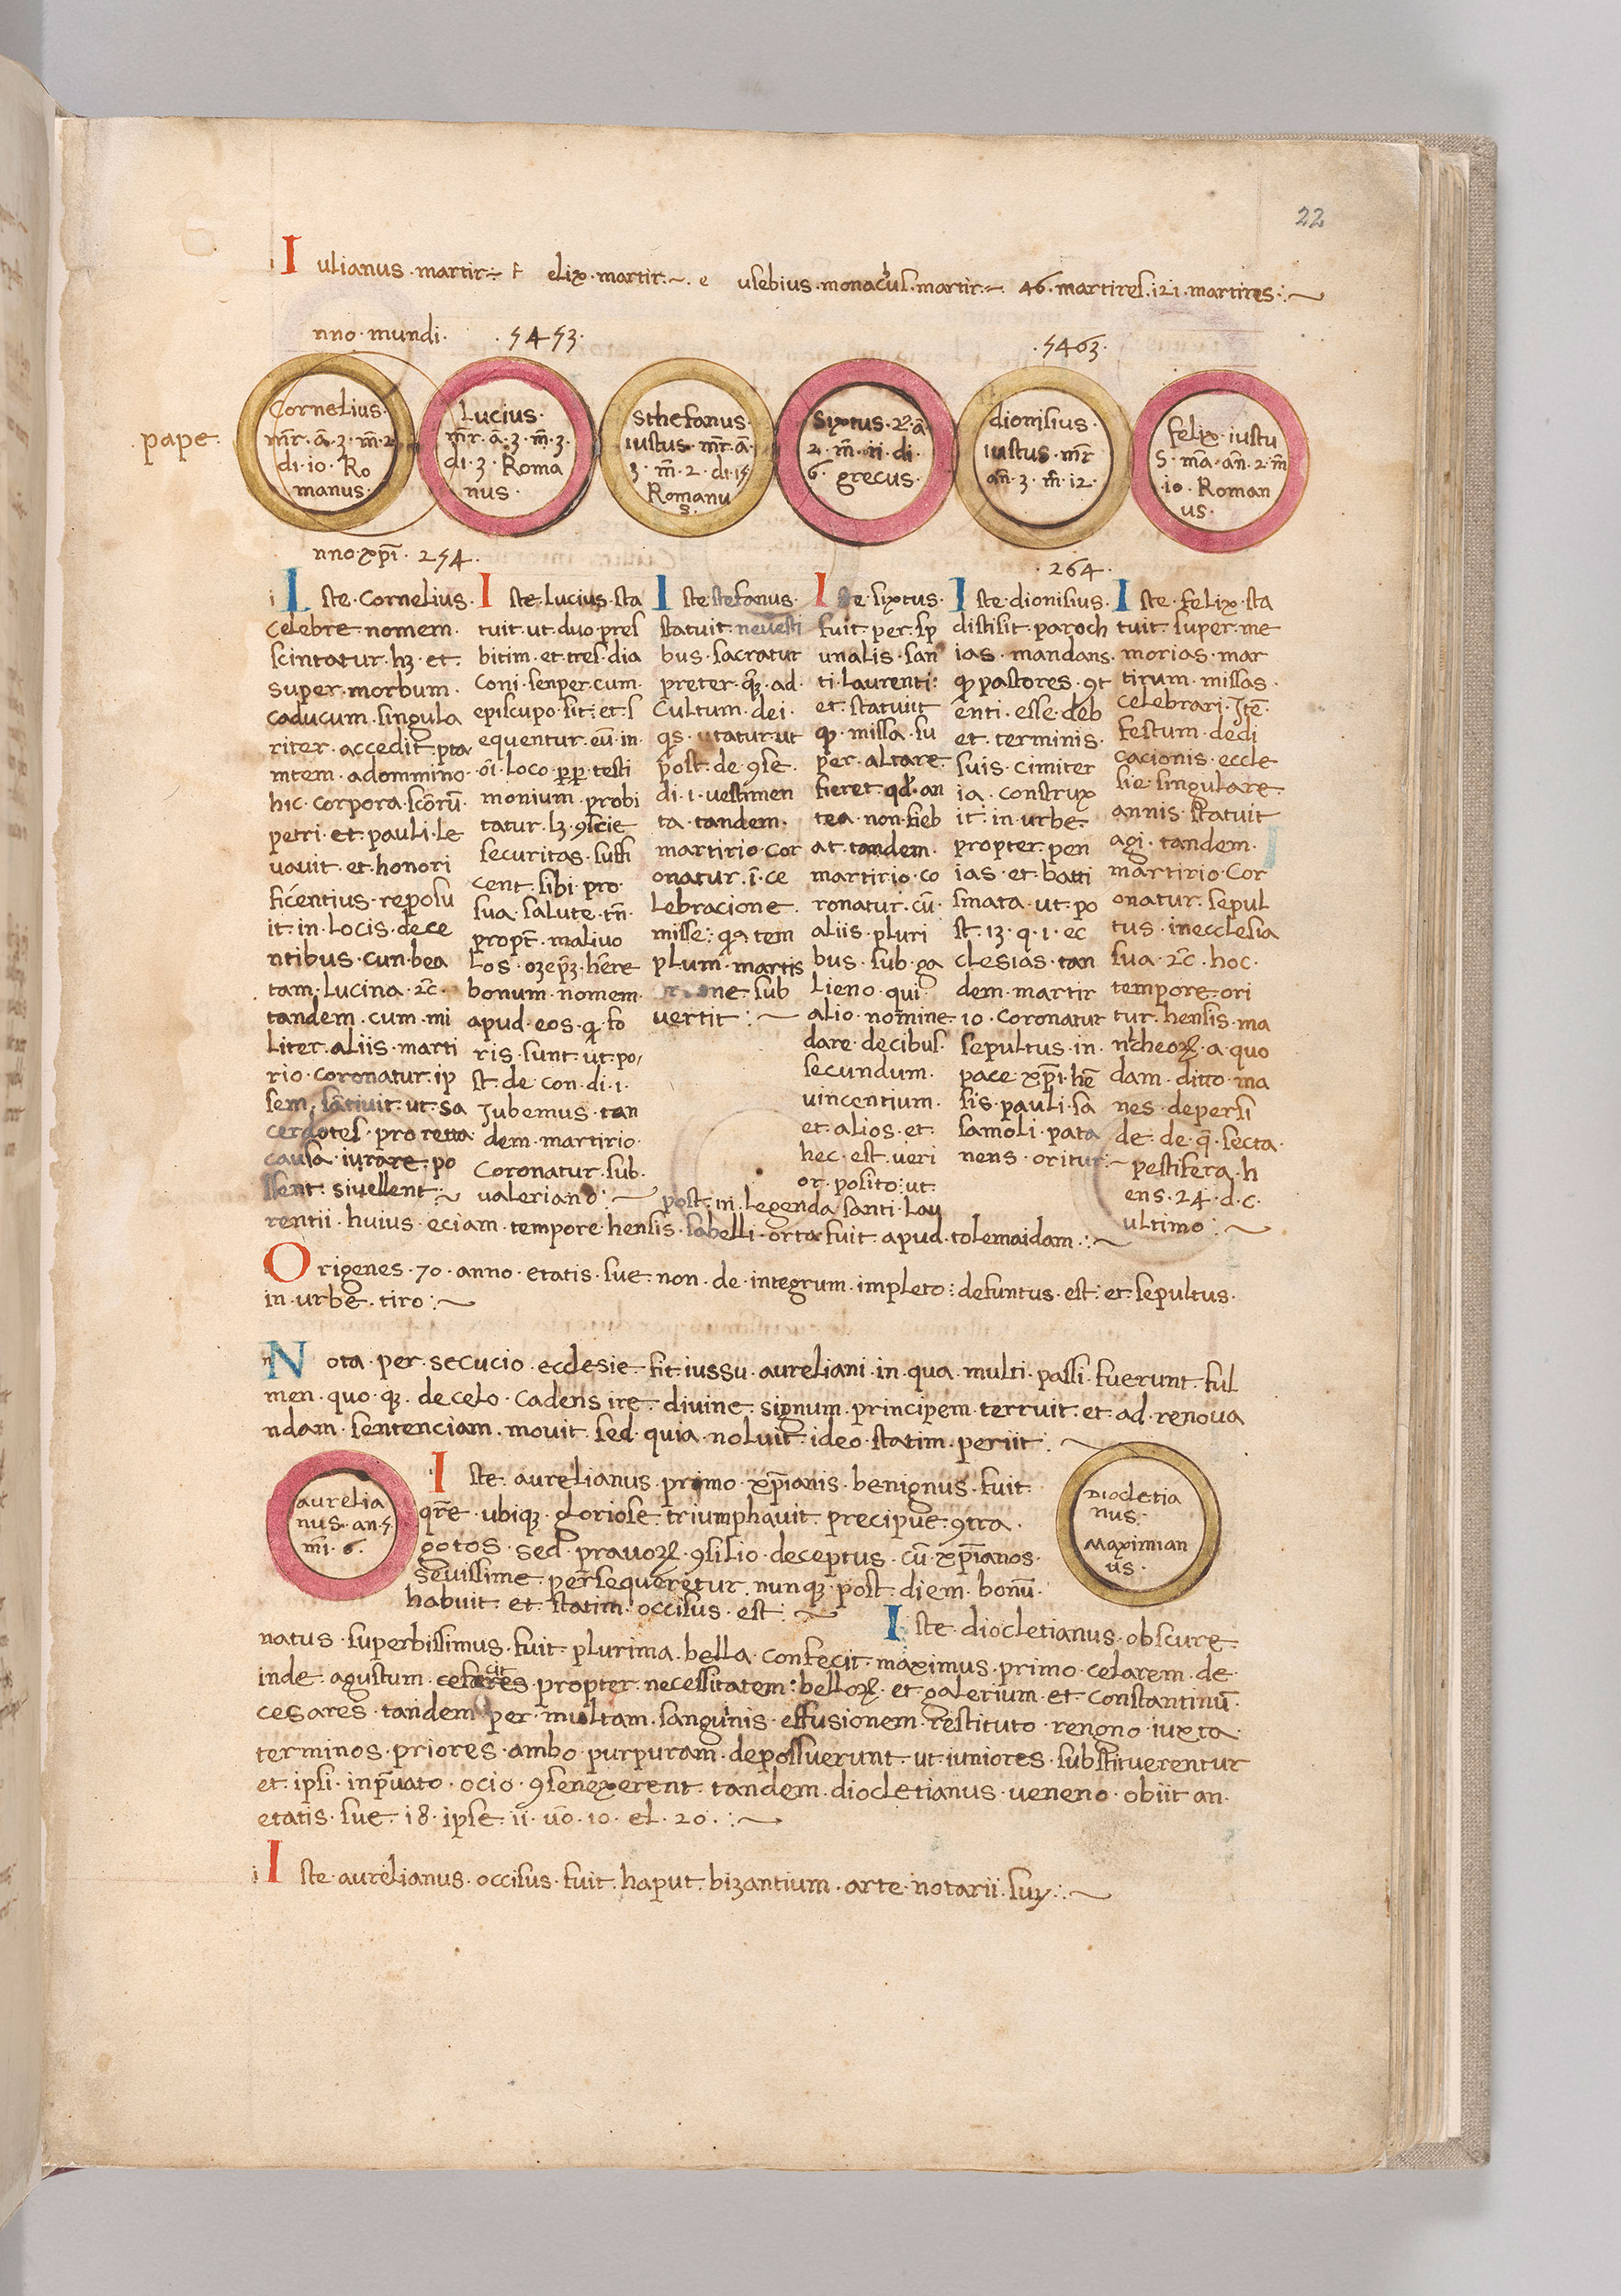 22
Iulianus · martir · felix · martir · eusebius · monacus · martir · 46 · martires · 121 · martires
nno · mundi · 5453 ·
· 5463 ·
pape ·
Cornelius ·
mr̄ · ā · 3 · m̄ · 2
di · 10 · Ro
manus ·
Lucius ·
mr̄ · ā · 3 · m̄ · 3 ·
di · 3 · Roma
nus ·
Sthefanus ·
iustus · mr̄ · ā ·
3 · m̄ · 2 · di · 15
Romanu
s ·
Sixtus · 2 · ā ·
2 · m̄ · 11 · di ·
6 · grecus ·
dionisius ·
iustus · mr̄
an̄ · 3 · m̄ · 12 ·
felix · iustu
s · ma · an̄ · 2 · m̄
10 · Roman
us ·
nno · xp̄i · 254 ·
· 264 ·
Iste · Cornelius ·
celebre · nomem ·
scintatur · hȝ · et ·
super · morbum ·
caducum · singula
riter · accedit · pta
mtem · adommino ·
hic · corpora · sc̄oru̅ ·
petri · et · pauli · le
vavit · et · honori
ficentius · reposu
it · in · locis · dece
ntibus · cun · bea
tam · lucina · 2c̄ ·
tandem · cum · mi
liter · aliis · marti
rio · coronatur · ip
sem · stativit · ut · sa
cerdotes · pro recta
causa · iurare · po
ssent · sivellent
Iste · Lucius · sta
tuit · ut · duo · pres
bitim · et · tres · dia
coni · senper · cum ·
episcupo · sit · et · s
equentur · eū · in ·
oī · loco · pp̄ · testi
monium · probi
tatur · lȝ · 9scie
securitas · suffi
cent · sibi · pro ·
sua · salute · tn̄ ·
propt̄ · malivo
los · hēre
bonum · nomem ·
apud · eos · qi · fo
ris · sunt · ut · po
st · de · con · di · 1 ·
Jubemus · tan
dem · martirio ·
coronatur · sub ·
valeriano
Iste stefanus ·
statuit · ne vesti
bus · sacratur
preter · qȝ · ad ·
cultum · dei ·
qs · utatur ut
post · de · 9se ·
di · 1 · vestimen
ta · tandem ·
martirio · cor
onatur · ī · ce
lebracione ·
misse · qa tem
plum · martis
ne · sub
vertit
Iste · sixtus ·
fuit · per · sp
unalis · san
ti · laurenti :
et · statuiit
qp · missa · su
per · altare ·
fieret · qd · an
tea · non · fieb
at · tandem ·
martirio · co
ronatur · cū ·
aliis · pluri
bus · sub · ga
lieno · qui ·
alio · nomine ·
dare · decibus ·
secundum ·
vincentium ·
et · alios · et ·
hec · est · veri
or · posito · ut ·
Iste · dionisius ·
distisit · paroch
ias · mandans ·
qp pastores · 9t
enti · esse · deb
et · terminis ·
suis · cimiter
ia · construx
it · in · urbe ·
propter · pen
ias · et · batti
smata · ut · po
st · 13 · q · 1 · ec
clesias · tan
dem · martir
io · coronatur
sepultus · in ·
pace · xp̄i · hē
sis · pauli · sa
samoli · pata
nens · oritur
Iste · felix · sta
tuit · super · me
morias · mar
tirum · missas ·
celebrari · Jtē ·
festum · dedi
cacionis · eccle
sie · singulare
annis · statuit
agi · tandem ·
martirio · cor
onatur · sepul
tus · inecclesia
sua · 2c̄ · hoc ·
tempore · ori
tur · hensis · ma
nicheoꝝ · a · quo
dam · ditto · ma
nes · depersi
de · de · q̄ · secta ·
pestifera · h
ens · 24 · d · c ·
ultimo
post · in · legenda · santi · lau
rentii · huius · eciam · tempore · hensis · sabelli · orta · fuit · apud · tolemaidam
Origenes · 70 · anno · etatis · sue · non · de · integrum · impleto : defuntus · est : et · sepultus ·
in · urbe · tiro
Nota · per · secucio · ecclesie · fit · iussu · aureliani · in · qua · multi · passi · fuerunt · ful
men · quo · qȝ · decelo · cadens ire · divine · signum · principem · terruit · et · ad · renova
ndam · sentenciam · movit · sed · quia · noluit · ideo · statim · periit
aurelia
nus · an · 5 ·
mī · 6 ·
Iste · aurelianus · primo · xp̄ianis · benignus · fuit ·
qr̄e · ubiqȝ · gloriose · triumphavit · precipue · 9tra ·
gotos · sed · pravoꝝ · 9silio · deceptus · cū · xp̄ianos ·
sevissime · persequeretur · nunqȝ · post · diem · bonū ·
habuit · et · statim · occisus · est
Diocletia
nus ·
Maximian
us ·
Iste · diocletianus · obscure ·
natus · superbissimus · fuit · plurima · bella · confecit · maximus · primo · cesarem · de ·
inde · agustum · cesares · propter · necessitatem · belloꝝ · et · galerium · et · constantinū ·
cesares · tandem · per · multam · sangunis · effusionem · restituto · rengno · iuxta ·
terminos · priores · ambo · purpuram · depossuerunt · ut · iuniores · substituerentur
et · ipsi · inpvato · ocio · 9senexerent · tandem · diocletianus · veneno · obiit · an ·
etatis · sue · 18 · ipse · ii · vō · 10 · el · 20 ·
Iste · aurelianus · occisus · fuit · haput · bizantium · arte · notarii · suy